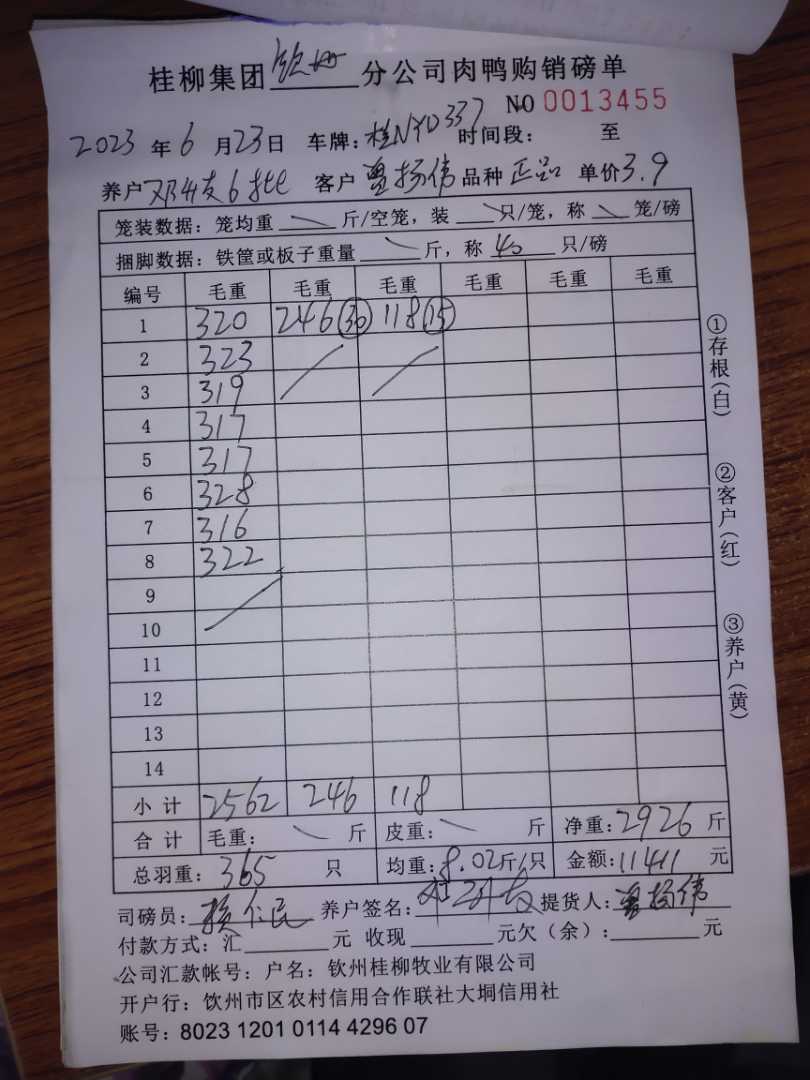 桂柳集团 钦州 分公司肉鸭购销磅单
NO 0013455
2023 年 6 月 23 日 车牌: 桂NYD337 时间段: 至
养户 邓 6批 客户 曾扬伟 品种 正品 单价 3.9
笼装数据: 笼均重 斤/空笼, 装 只/笼, 称 笼/磅
捆脚数据: 铁筐或板子重量 斤, 称 40 只/磅
编号 毛重 毛重 毛重 毛重 毛重 毛重
1 320 246 (30) 118 (15)
2 323
3 319
4 317
5 317
6 328
7 316
8 322
9
10
11
12
13
14
小计 2562 246 118
合计 毛重: 斤 皮重: 斤 净重: 2926 斤
总羽重: 365 只 均重: 8.02 斤/只 金额: 11411 元
司磅员: 仁民 养户签名: 提货人: 曾扬伟
付款方式: 汇 元 收现 元欠(余): 元
公司汇款帐号: 户名: 钦州桂柳牧业有限公司
开户行: 钦州市区农村信用合作联社大垌信用社
账号: 8023 1201 0114 4296 07
①存根(白)
②客户(红)
③养户(黄)